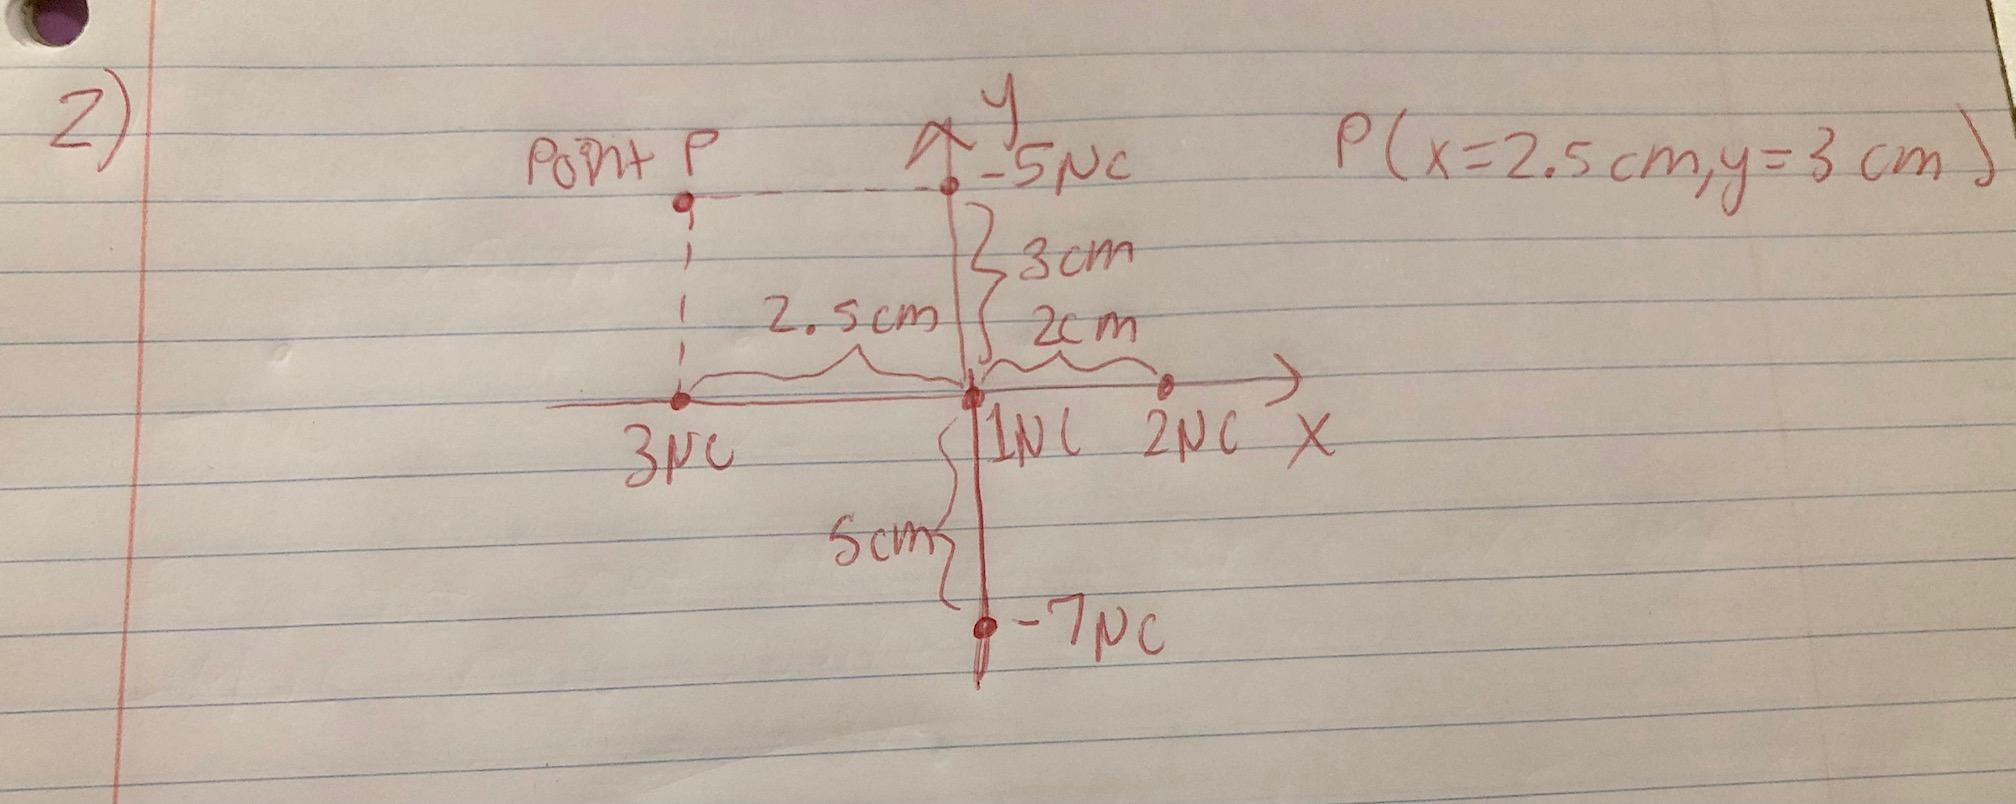 2)
y
Point P
-5NC
P(x=2.5cm,y=3cm)
3cm
2.5cm
2cm
3NC
1NC
2NC
X
5cm
-7NC